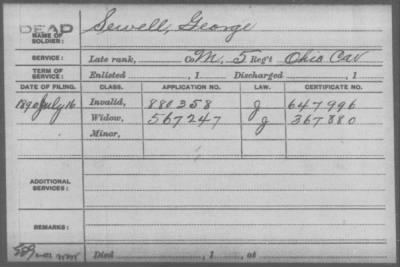 DEAD
NAME OF SOLDIER: Sewell, George
SERVICE: Late rank, Co M, 5 Reg't Ohio Cav
TERM OF SERVICE: Enlisted , 1 Discharged , 1
DATE OF FILING. CLASS. APPLICATION NO. LAW. CERTIFICATE NO.
1890 July 16 Invalid, 880358 J 647996
Widow, 567247 J 367880
Minor,
ADDITIONAL SERVICES:
REMARKS:
Died , 1 , at